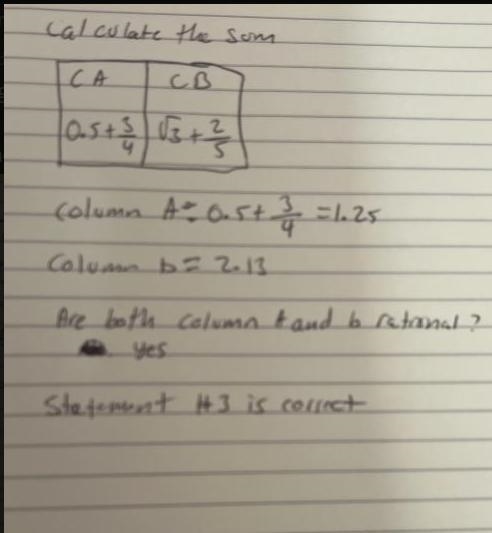 Calculate the sum
CA CB
0.5+3/4 √3+2/5
Column A = 0.5+3/4 =1.25
Column b = 2.13
Are both column A and b rational?
yes
Statement #3 is correct